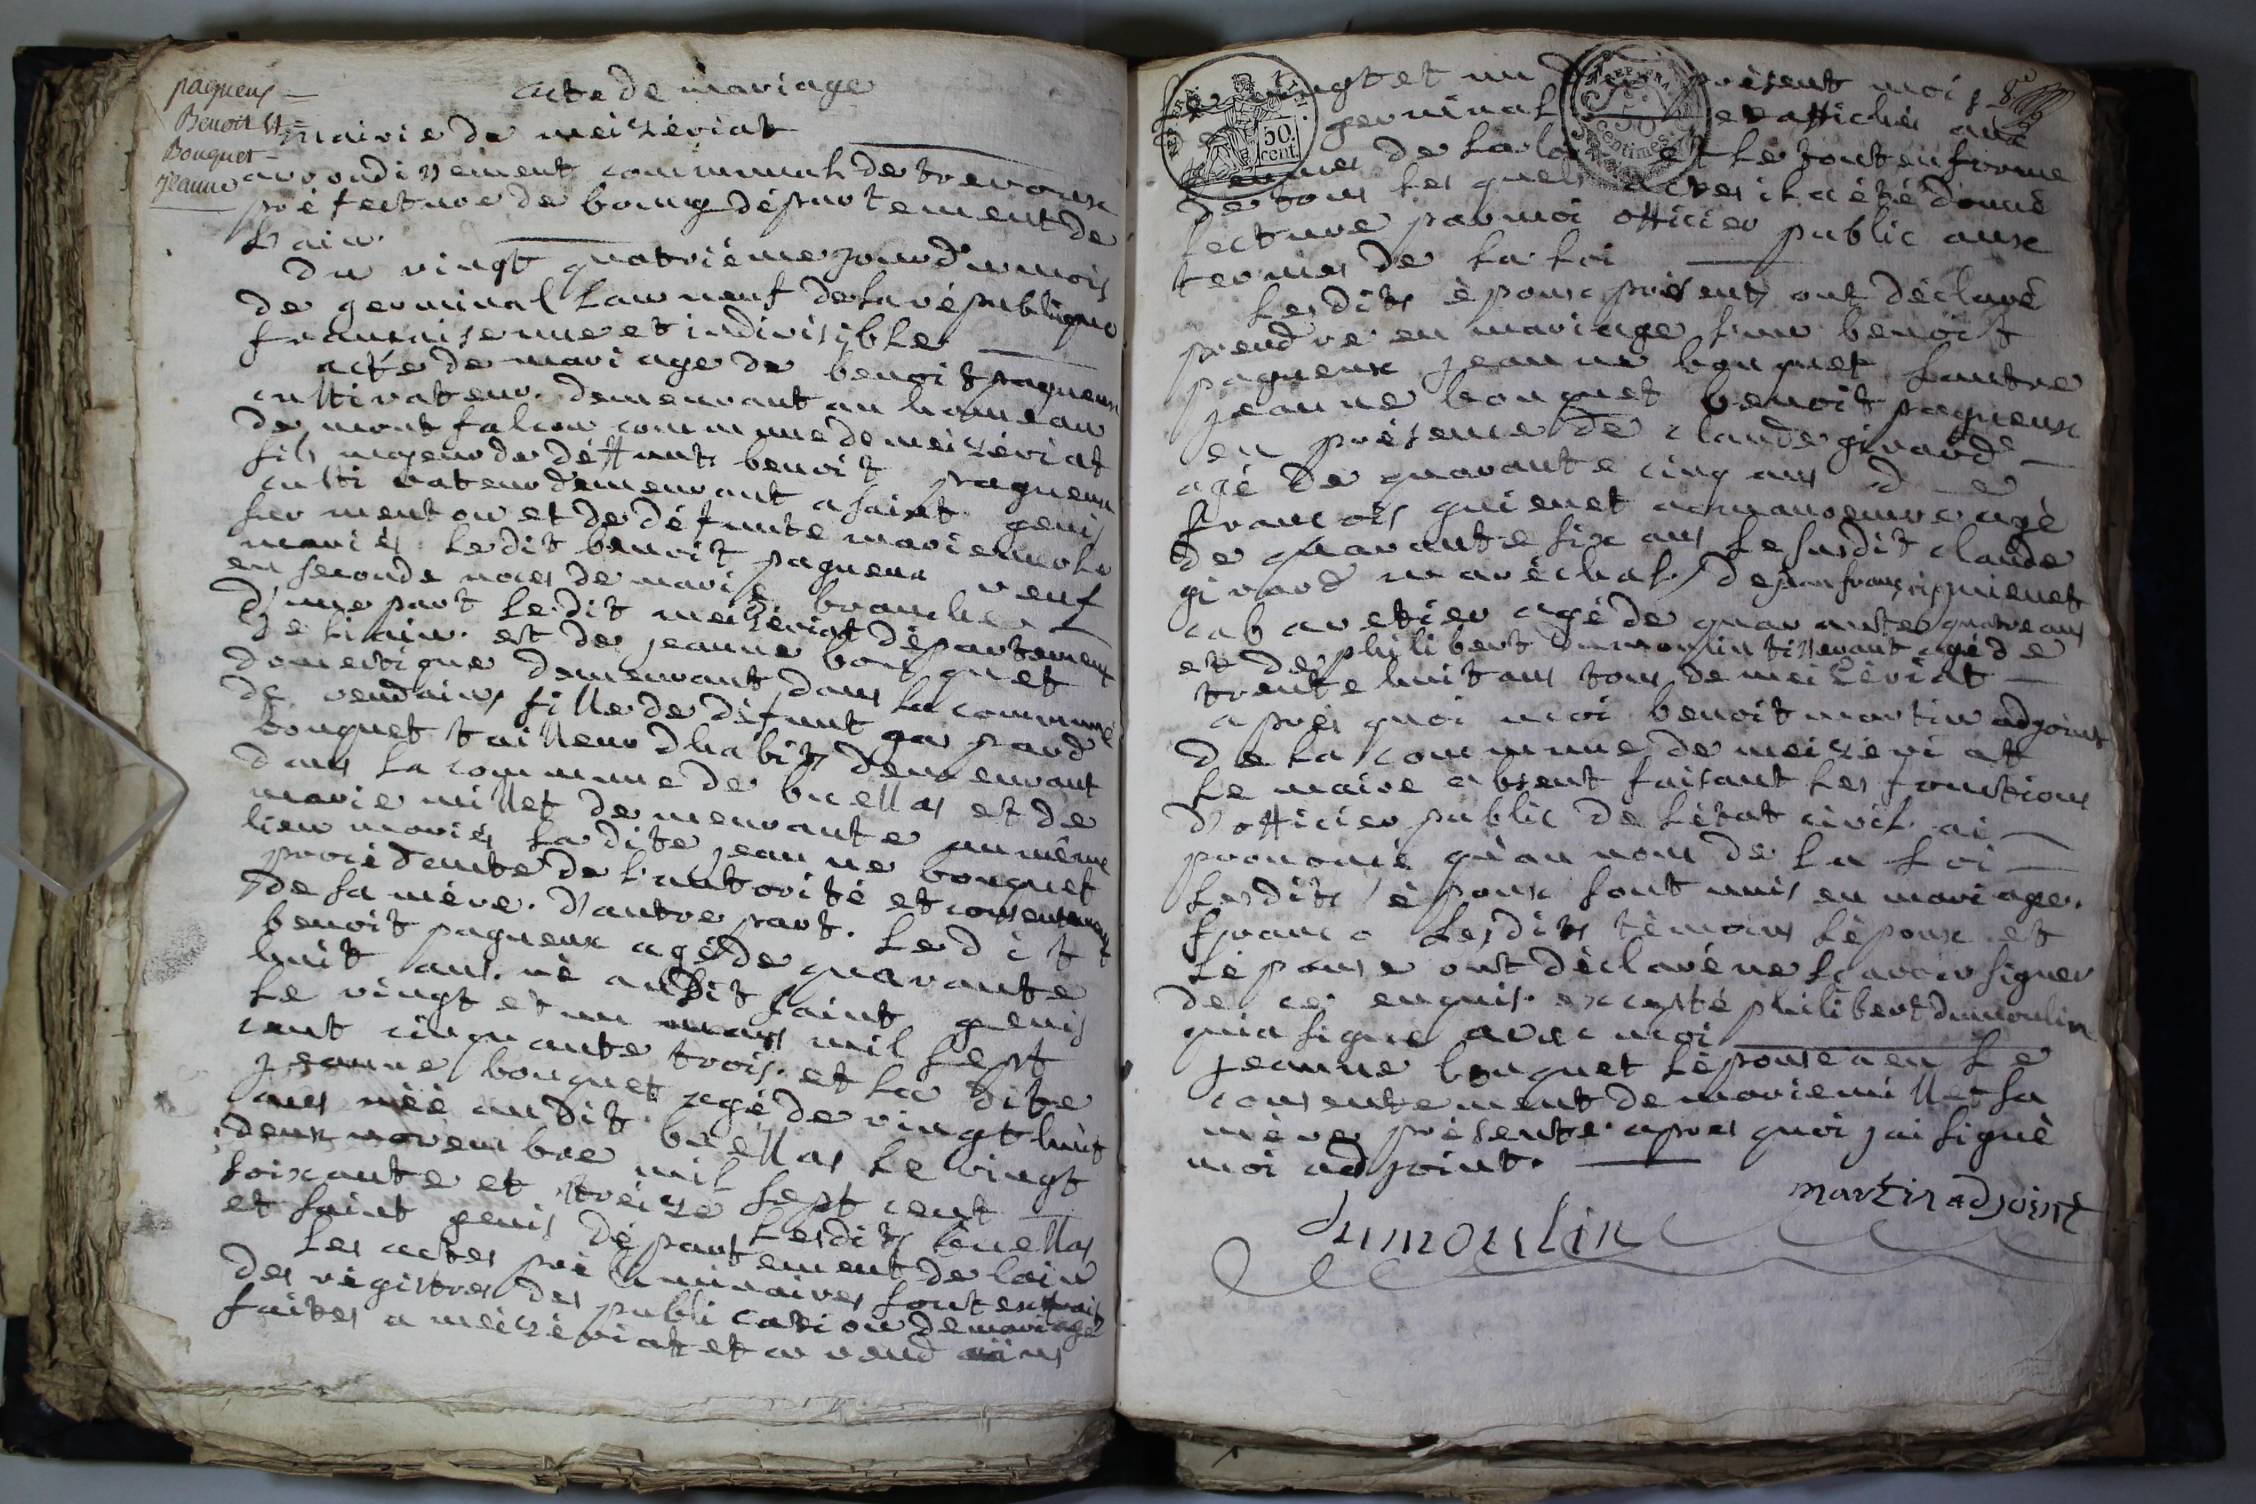 paqueux
Benoit
Bouquet
jeanne
acte de mariage
mairie de meizériat
arrondissement communal de trevoux
préfecture de bourg département de
l'ain
du vingt quatriéme jour du mois
de germinal l'an neuf de la république
francaise une et indivisyble
acte de mariage de benoit paqueux
cultivateur demeurant au hameau
de mont falcon commune de meizériat
fils majeur de déffunts benoit paqueux
cultivateur demeurant a saint genis
sur menton et de défunte marie
mariés ledit benoit paqueux veuf
en seconde noces de marie branche
d'une part ledit meizériat département
de l'ain. et de jeanne bouquet
domestique demeurant dans la commune
de vendains fille de défunt gaspard
bouquet tailleur dhabits demeurant
dans la commune de buellas et de
marie millet demeurante au même
lieu mariés la dite jeanne bouquet
procédente de l'autorité et consentement
de sa mère. d'autre part. ledit
benoit paqueux agé de quarante
huit ans. né audit saint genis
le vingt et un mars mil sept
cent cinquante trois. et la dite
jeanne bouquet agé de vingt huit
ans née audit buellas le vingt
deux novembre mil sept cent
soixante et treize lesdits buellas
et saint genis département de lain
les actes préliminaires sont extrait
des régistres des publication de mariage
faites a meizériat et a vend ains
vingt et un présent moi
germinal et affichés aux
termes de la loi et le tout en forme
de tous les quels actes il a été donné
lecture par moi officier public aux
termes de la loi
lesdits époux présents ont déclaré
prendre en mariage l'un benoit
paqueux jeanne bouquet lautre
jeanne bouquet benoit paqueux
en présence de claude girard
agé de quarante cinq ans de
francois guienet manoeuvre agé
de quarante six ans le susdit claude
girard maréchal, de jean francois guienet
cabaretier agé de quarantes quatre ans
et de philibert dumoulin tisserant agé de
trente huit ans tous de meizériat
apres quoi moi benoit martin adjoint
de la commune de meizériat
le maire absent faisant les fonctions
d'officier public de l'état civil ai
prononcé qu'au nom de la loi
lesdits époux sont unis en mariage.
lesdits témoins l'époux et
l'épouse ont déclaré ne scavoir signer
de ce enquis. excepté philibert dumoulin
qui a signe avec moi
jeanne bouquet l'épouse a eu le
consentement de marie millet sa
mère présente. apres quoi jai signé
moi adjoint.
martin adjoint
dumoulin
50.
cent.
REP. FRA.
50
centimes.